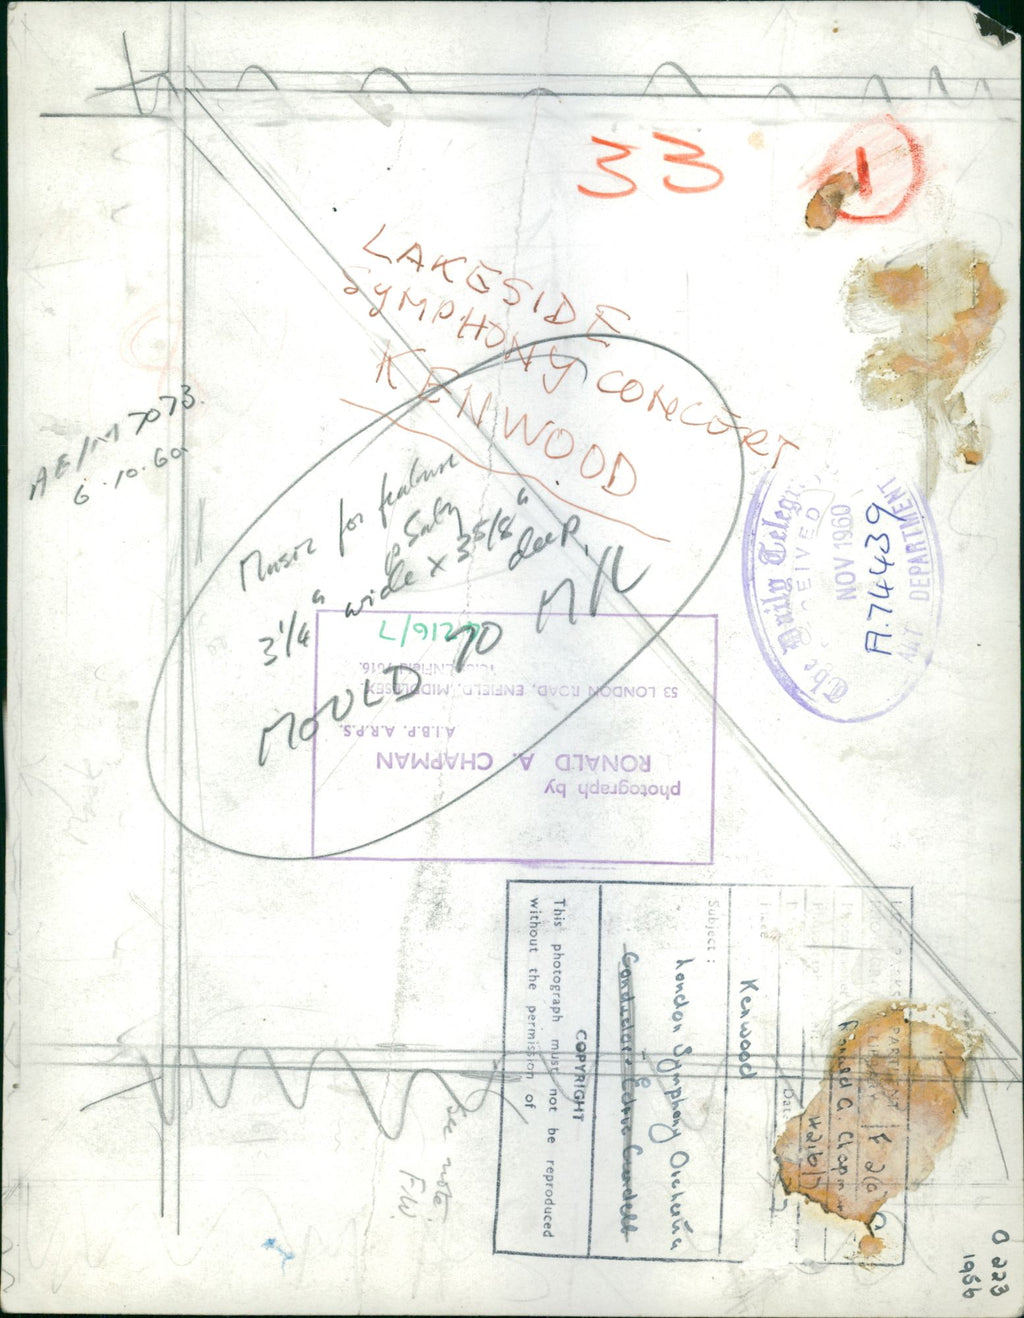 33
1
LAKESIDE
SYMPHONY CONCERT
KENWOOD
AE/M 7073.
6.10.60
Music for feature
3 1/4" wide x 3 5/8" deep.
MOULD TO M/C
The Daily Telegraph
RECEIVED
NOV 1960
A.74439
ART DEPARTMENT
photograph by
RONALD A. CHAPMAN
A.I.B.P. A.R.P.S.
53 LONDON ROAD, ENFIELD, MIDDLESEX.
4216/7
Ronald A. Chapman
4216/7
Date
Kenwood
Subject :
London Symphony Orchestra
COPYRIGHT
This photograph must not be reproduced
without the permission of
See note.
F.W.
O 223
1956